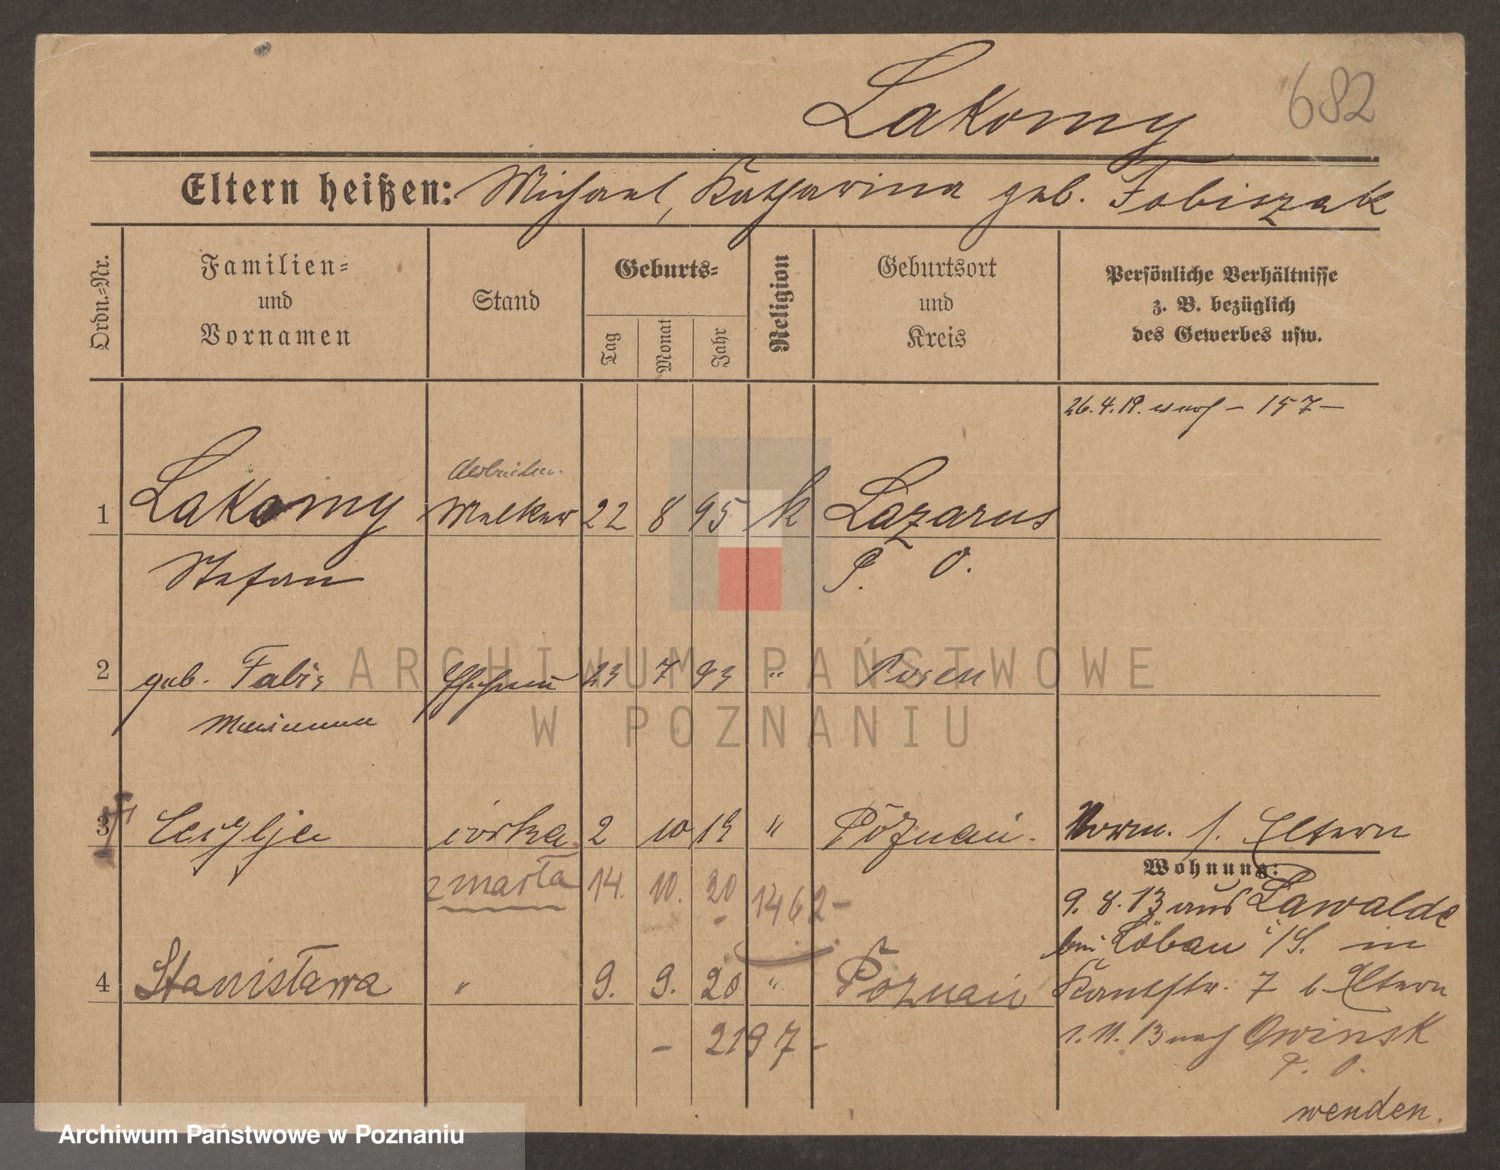 Lakomy
682
Eltern heißen: Michael, Katharina geb. Fabiszak
Ordn.-Nr.
Familien-
und
Vornamen
Stand
Geburts-
Tag
Monat
Jahr
Religion
Geburtsort
und
Kreis
Persönliche Verhältnisse
z. B. bezüglich
des Gewerbes usw.
26.4.19. - 157 -
1 Lakomy Melker 22 8 95 k Lazarus
Stefan P. O.
2 geb. Fabiś Ehefrau 23 7 93 " Posen
Marianna
3 Cecylja córka 2 10 19 " Poznań. Vorm. s. Eltern
zmarła 14. 10. 20 1462 -
Wohnung:
9. 8. 13 aus Lawalde
bei Löbau i/S. in
4 Stanisława " 9. 9. 20 " Poznań Kantstr. 7 b. Eltern
- 2197 -
1. 11. 13 nach Owinsk
P. O.
wenden.
ARCHIWUM PAŃSTWOWE
W POZNANIU
Archiwum Państwowe w Poznaniu